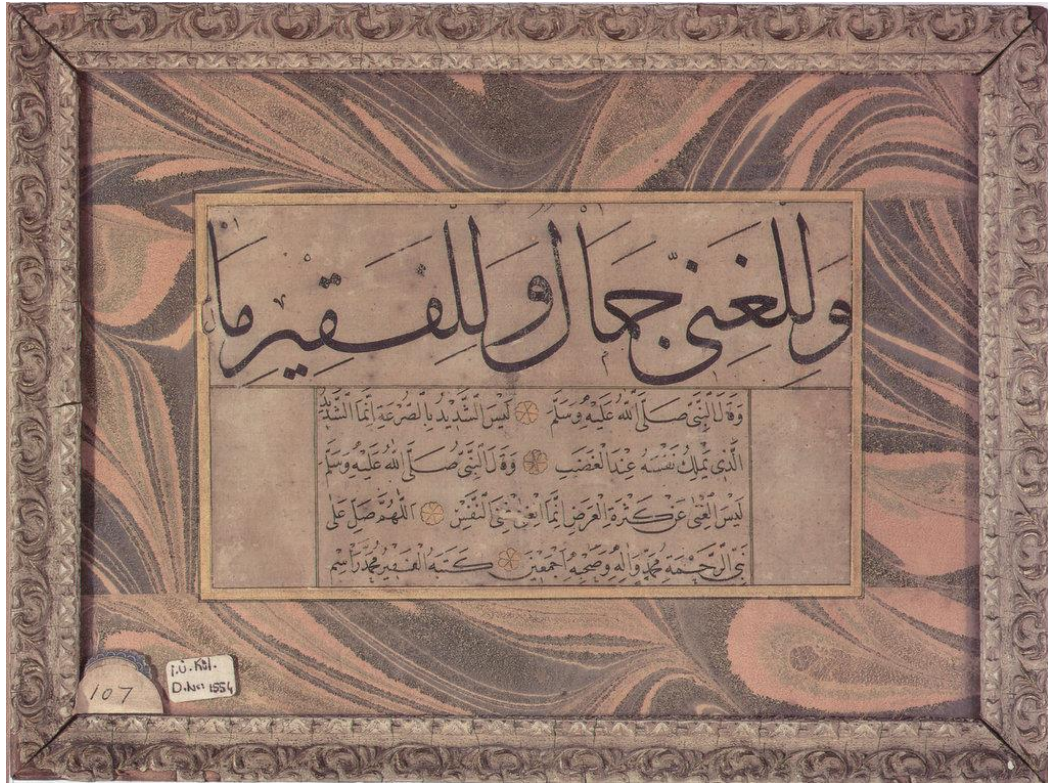 وللغنى جمال وللفقير ما
وقال النبى صلى الله عليه وسلم ليس الشديد بالصرعة إنما الشديد
الذى يملك نفسه عند الغضب وقال النبى صلى الله عليه وسلم
ليس الغنى عن كثرة العرض إنما الغنى غنى النفس اللهم صل على
نبى الرحمة محمد وآله وصحبه أجمعين كتبه الفقير محمد راسم
107
İ.Ü. Ktl.
D.No: 1554